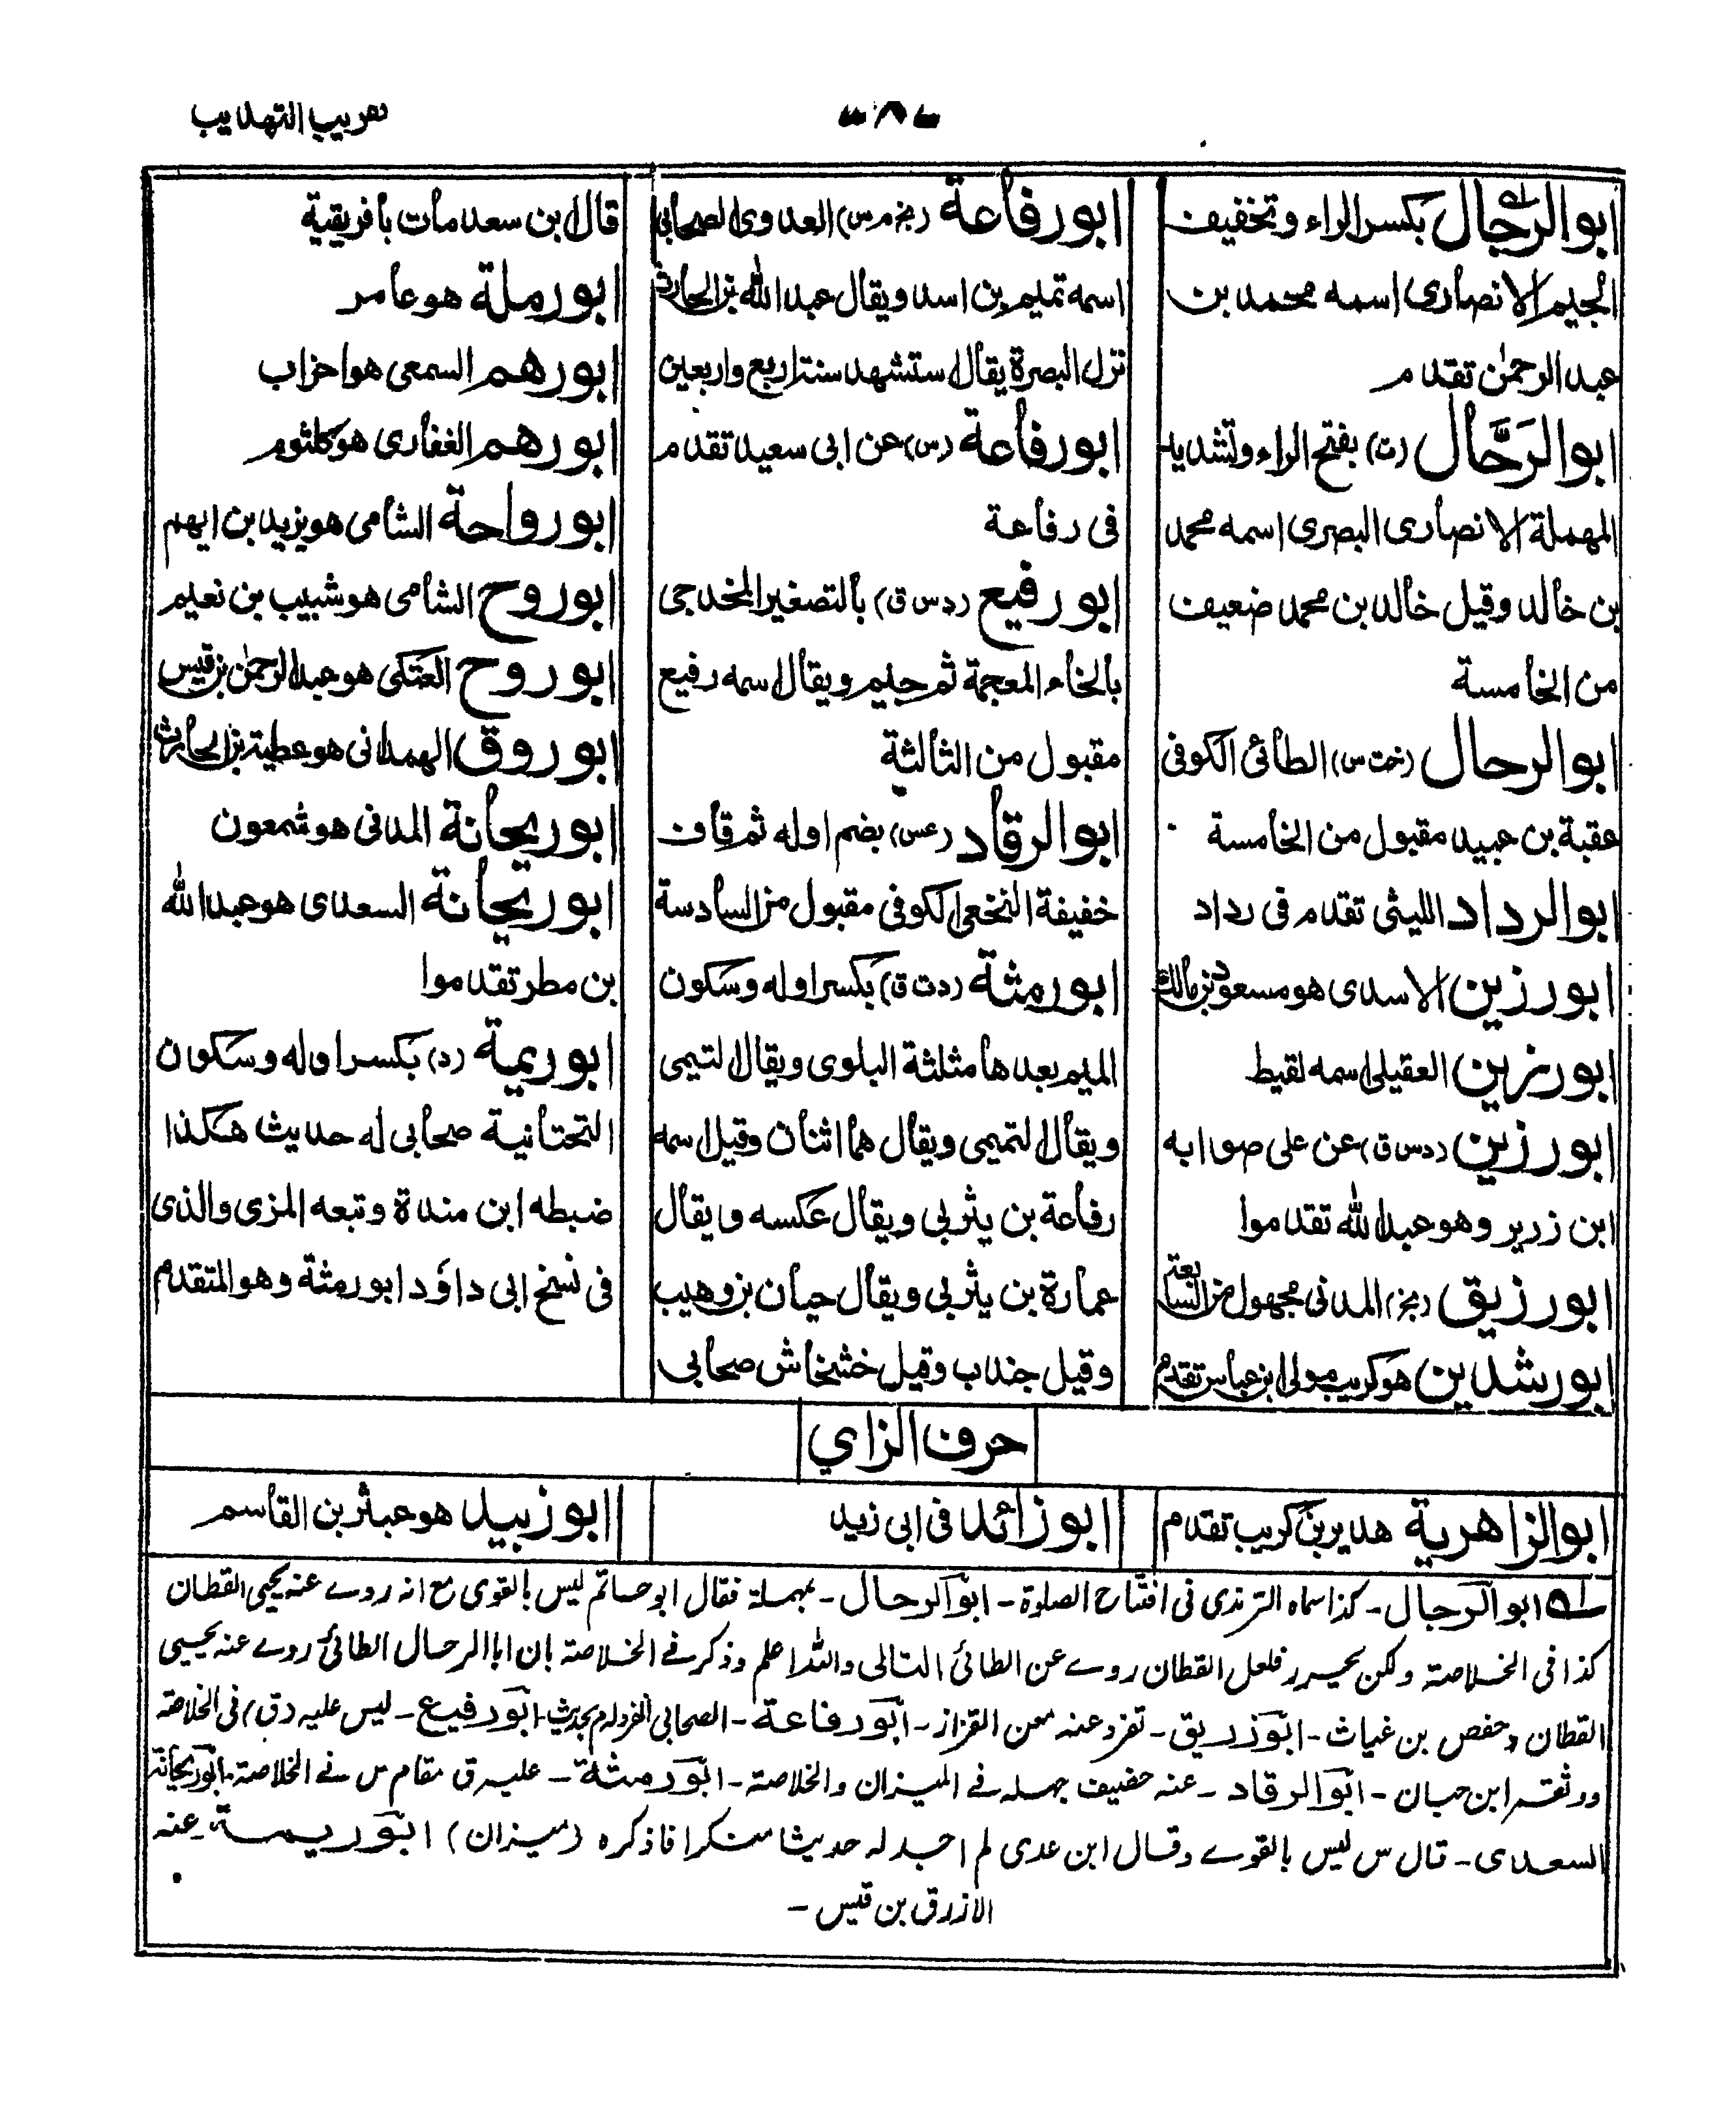 تقريب التهذيب
ابو الرجال بكسر الراء وتخفيف
الجيم الانصارى اسمه محمد بن
عبد الرحمن تقدم
ابو الرَحَّال (ت) بفتح الراء وتشديد
المهملة الانصارى البصرى اسمه محمد
بن خالد وقيل خالد بن محمد ضعيف
من الخامسة
ابو الرحال (خت س) الطائى الكوفى
عقبة بن عبيد مقبول من الخامسة
ابو الرداد الليثى تقدم فى رداد
ابو رزين الاسدى هو مسعود بن مالك
ابو رزين العقيلى اسمه لقيط
ابو رزين (دس ق) عن على صوابه
ابن زرير وهو عبد الله تقدموا
ابو رزيق (بخ) المدنى مجهول من السابعة
ابو رشدين هو كريب مولى ابن عباس تقدم
ابو رفاعة (بخ م س) العدوى الصحابى
اسمه تميم بن اسد ويقال عبد الله بن الحارث
نزل البصرة يقال استشهد سنة اربع واربعين
ابو رفاعة (س) عن ابى سعيد تقدم
فى رفاعة
ابو رفيع (دس ق) بالتصغير المخدجى
بالخاء المعجمة ثم جيم ويقال اسمه رفيع
مقبول من الثالثة
ابو الرقاد (عس) بضم اوله ثم قاف
خفيفة النخعى الكوفى مقبول من السادسة
ابو رمثة (دت ق) بكسر اوله وسكون
الميم بعدها مثلثة البلوى ويقال التيمى
ويقال التميمى ويقال هما اثنان وقيل اسمه
رفاعة بن يثربى ويقال عكسه ويقال
عمارة بن يثربى ويقال حيان بن وهيب
وقيل جندب وقيل خشخاش صحابى
قال ابن سعد مات بافريقية
ابو رملة هو عامر
ابو رهم السمعى هو احزاب
ابو رهم الغفارى هو كلثوم
ابو رواحة الشامى هو يزيد بن ايهم
ابو روح الشامى هو شبيب بن نعيم
ابو روح العتكى هو عبد الرحمن بن قيس
ابو روق الهمدانى هو عطية بن الحارث
ابو ريحانة المدنى هو شمعون
ابو ريحانة السعدى هو عبد الله
بن مطر تقدموا
ابو ريمة (د) بكسر اوله وسكون
التحتانية صحابى له حديث هكذا
ضبطه ابن مندة وتبعه المزى والذى
فى نسخ ابى داؤد ابو رمثة وهو المتقدم
حرف الزاي
ابو الزاهرية هدير بن كريب تقدم
ابو زائد فى ابى زيد
ابو زبيد هو عبثر بن القاسم
له ابو الرجال - كذا سماه الترمذى فى افتتاح الصلوة - ابو الرحال - بمهملة فقال ابو حاتم ليس بالقوى مع انه روے عنه يحيى القطان
كذا فى الخلاصة ولكن يحرر فلعل القطان روے عن الطائى التالى والله اعلم وذكر فے الخلاصة ان ابا الرحال الطائى روے عنه يحيى
القطان وحفص بن غياث - ابو زريق - تفرد عنه معن القزاز - ابو رفاعة - الصحابى انفرد له م بحديث - ابو رفيع - ليس عليه (ق) فى الخلاصة
ووثقه ابن حبان - ابو الرقاد - عنه حفيف جهله فے الميزان والخلاصة - ابو رمثة - عليه ق مقام س فے الخلاصة - ابو ريحانة
السعدى - قال س ليس بالقوے وقال ابن عدى لم اجد له حديثا منكرا فاذكره (ميزان) ابو ريمة - عنه
الازرق بن قيس -